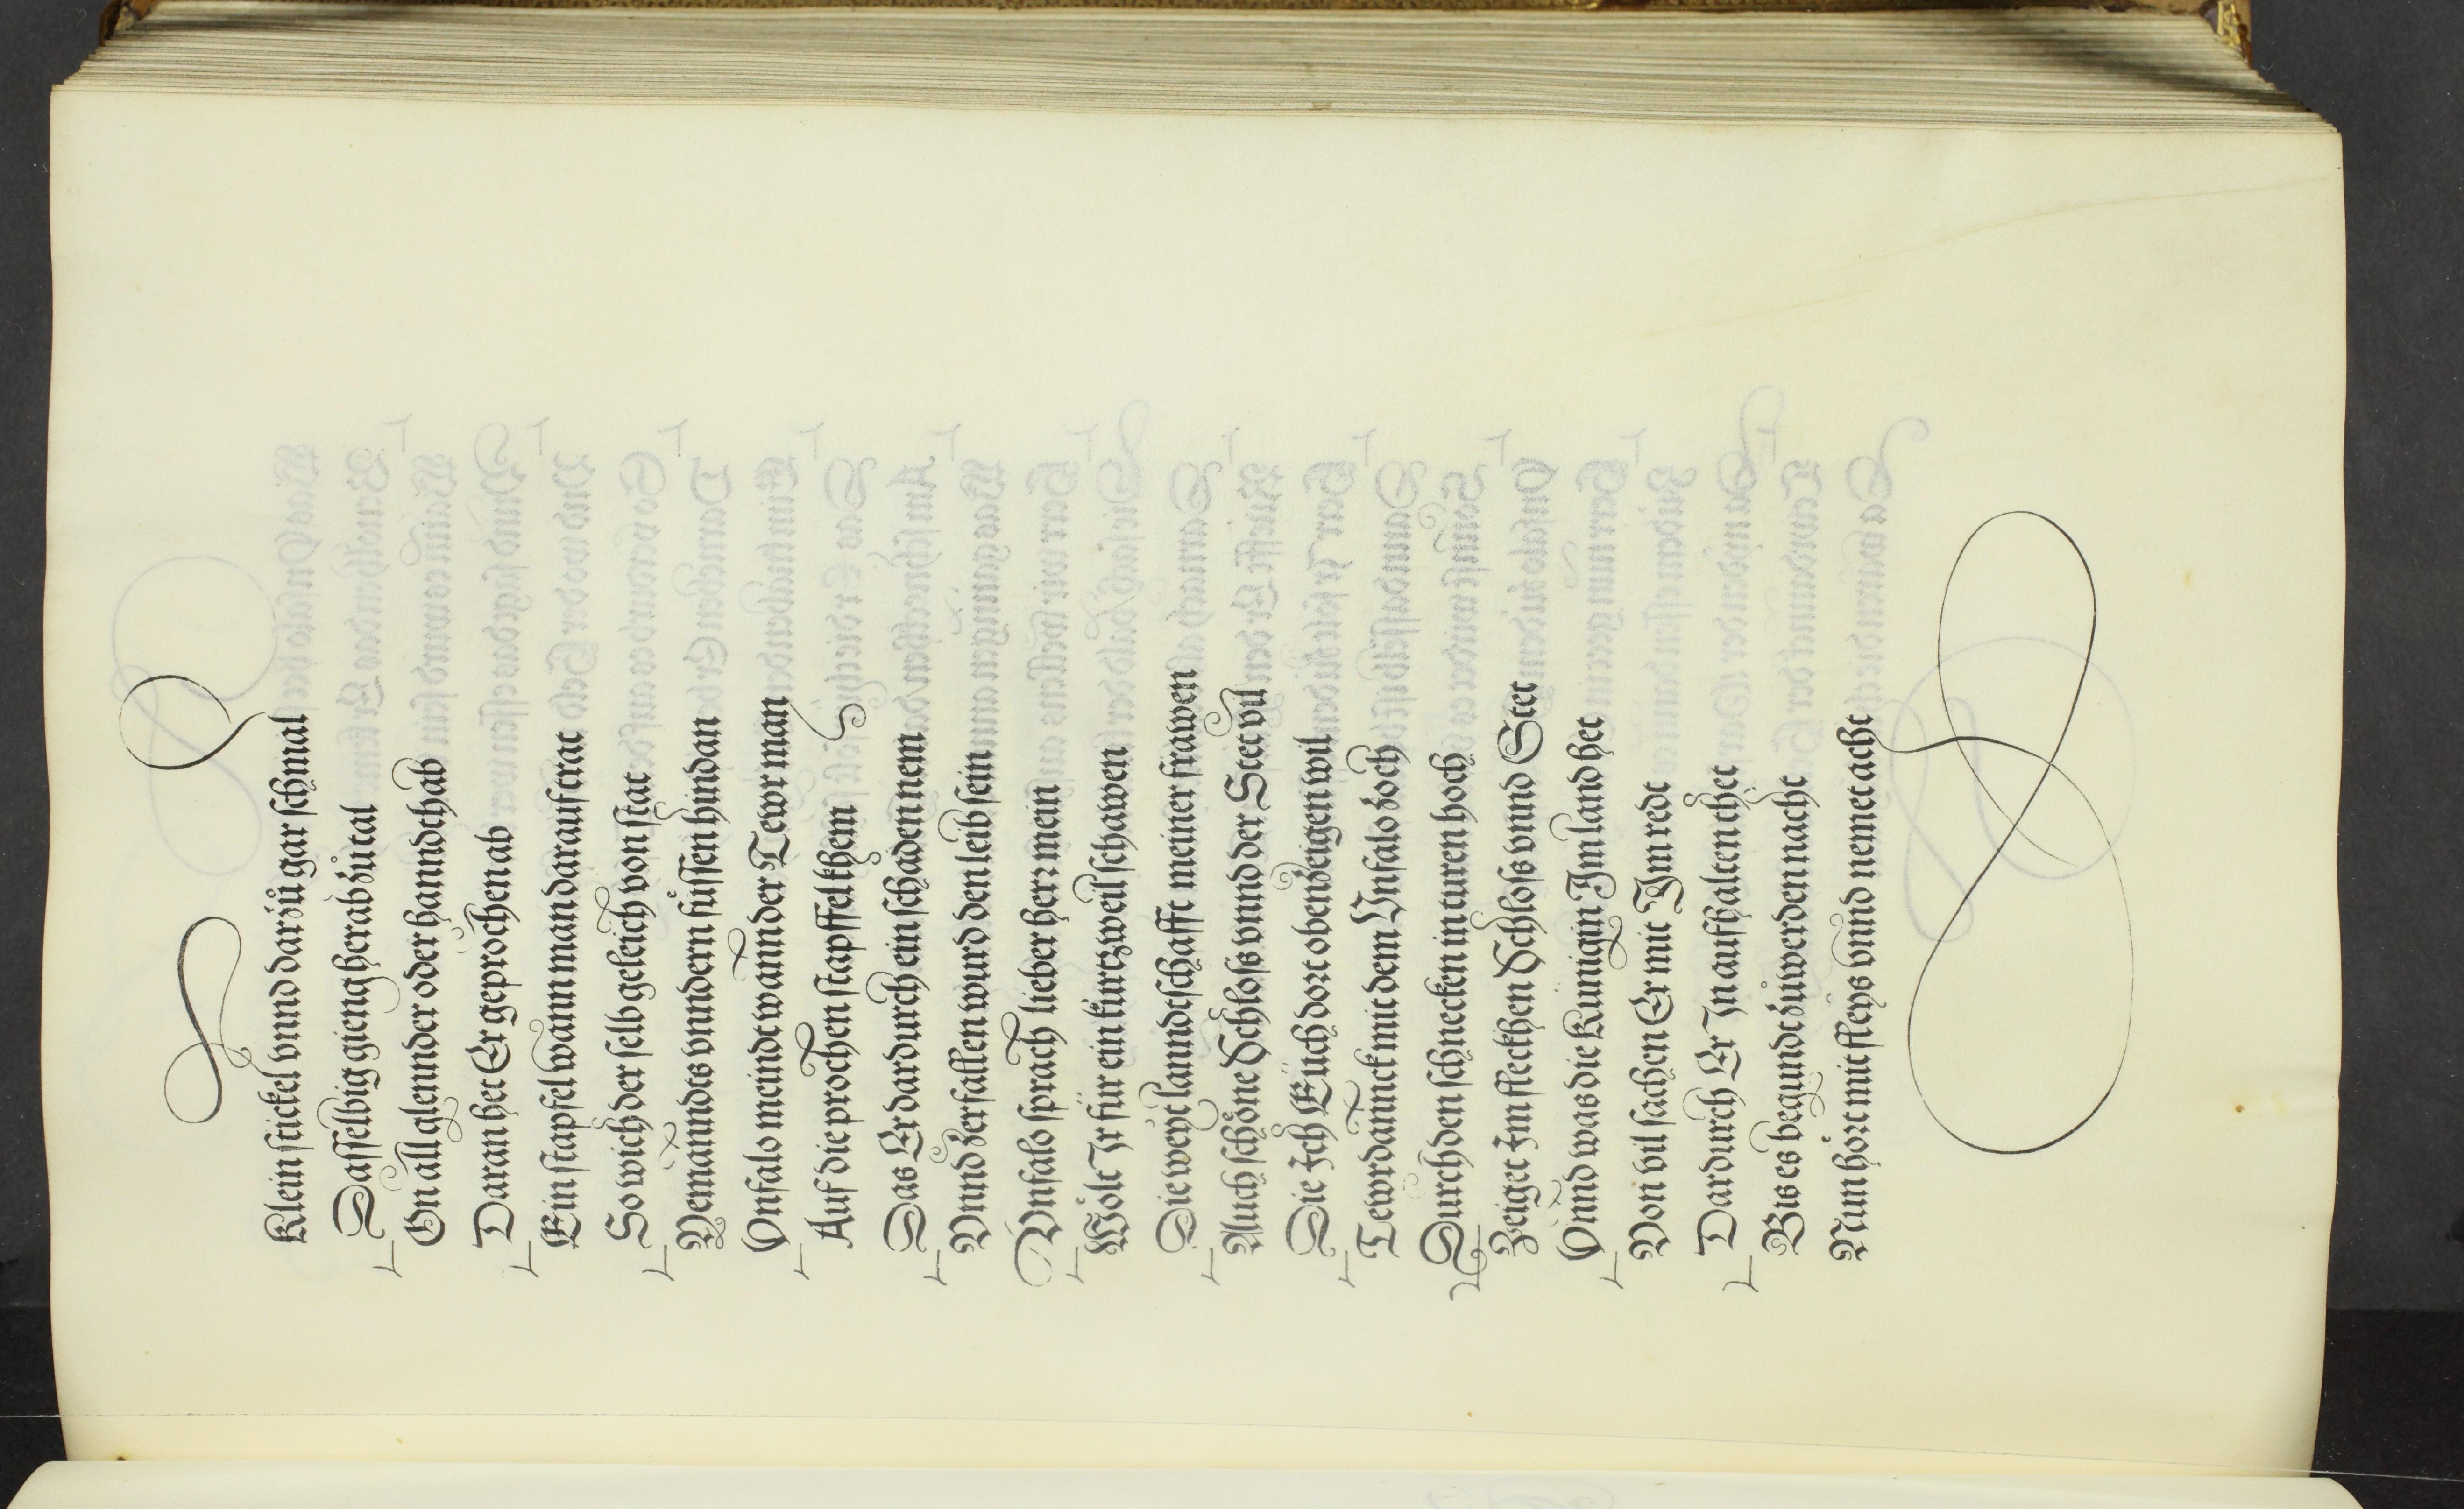 Klein stickel vnnd darzů gar schmal
Dasselbig gieng herab zů tal
On all glennder oder hanndthab
Daran het Er geprochen ab
Ein stapfel wann man darauf trat
So wich der selb geleich von stat
Yemanndts vnndern füssen hindan
Vnfalo meindt wann der Tewr man
Auf die prochen stapffel khem
Das Er dardurch ein schaden nem
Vnnd zerfallen wurd den leib sein
Vnfalo sprach lieber herr mein
Wölt Ir für ein kurtzweil schawen
Die weyt lanndtschafft meiner frawen
Auch schöne Schloss vnnd der Stet vil
Die Ich Euch dort oben zeigen wil
Tewrdannck mit dem Vnfalo zoch
Durch den schnecken in turen hoch
Zeiget Im fleckhen Schloss vnnd Stet
Vnnd was die Künigin Im land het
Von vil sachen Er mit Im redt
Dardurch Er In aufhalten thet
Bis es begundt zů werden nacht
Nun hört mit fleys vnnd nemet acht